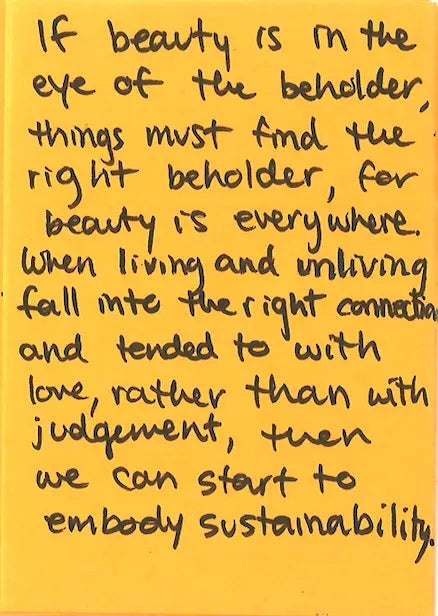 If beauty is in the
eye of the beholder,
things must find the
right beholder, for
beauty is everywhere.
When living and unliving
fall into the right connection
and tended to with
love, rather than with
judgement, then
we can start to
embody sustainability.